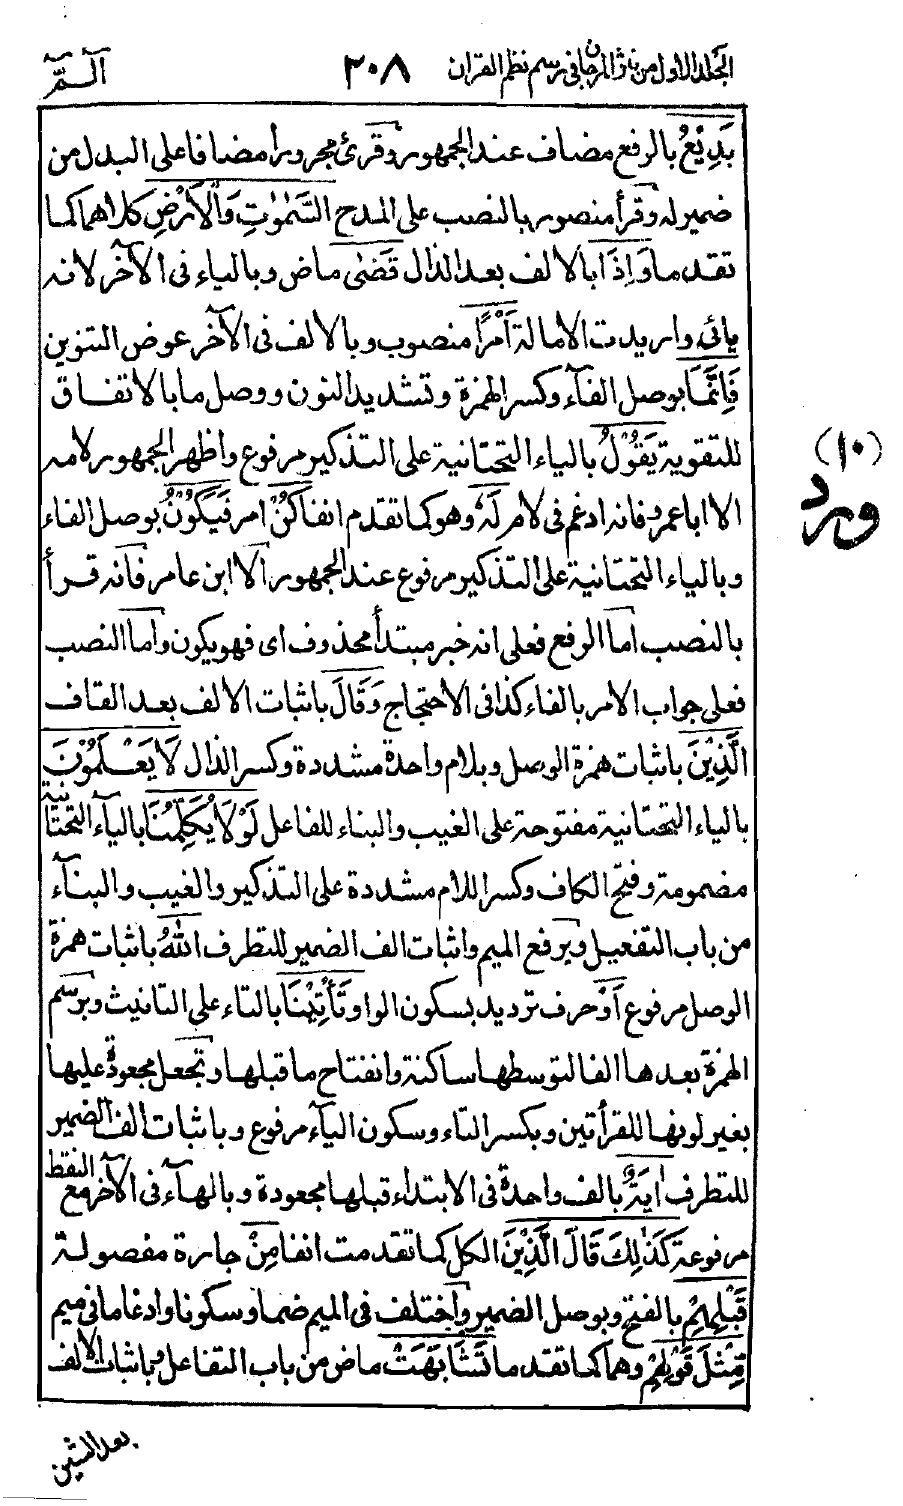 الجلد الاول من نثر المرجان في رسم نظم القران ٢٠٨ الٓمّٓ
بَدِيْعُ بالرفع مضاف عند الجمهور وقرئ مجرورا مضافا على البدل من
ضمير له وقرأ منصور بالنصب على المدح السَّمٰوٰتِ وَالْاَرْضِ كلاهما كما
تقدما وَاِذَا بالالف بعد الذال قَضٰى ماض وبالياء فى الآخر لانه
يائى واريدت الامالة اَمْرًا منصوب وبالالف فى الآخر عوض التنوين
فَاِنَّمَا بوصل الفآء وكسر الهمزة وتشديد النون ووصل ما بالاتفاق
للتقوية يَقُوْلُ بالياء التحتانية على التذكير مرفوع واظهر الجمهور لامه
الا ابا عمرو فانه ادغم فى لام لَهٗ وهو كما تقدم انفا كُنْ امر فَيَكُوْنُ بوصل الفاء
وبالياء التحتانية على التذكير مرفوع عند الجمهور الا ابن عامر فانه قرأ
بالنصب اما الرفع فعلى انه خبر مبتدأ محذوف اى فهو يكون واما النصب
فعلى جواب الامر بالفاء كذا فى الاحتجاج وَقَالَ باثبات الالف بعد القاف
الَّذِيْنَ باثبات همزة الوصل وبلام واحدة مشددة وكسر الذال لَا يَعْلَمُوْنَ
بالياء التحتانية مفتوحة على الغيب والبناء للفاعل لَوْلَا يُكَلِّمُنَا بالياء التحتانية
مضمومة وفتح الكاف وكسر اللام مشددة على التذكير والغيب والبنآء
من باب التفعيل ويرفع الميم واثبات الف الضمير للتطرف اللّٰهُ باثبات همزة
الوصل مرفوع اَوْ حرف ترديد بسكون الواو تَأْتِيْنَا بالتاء على التانيث وبرسم
الهمزة بعدها الفا لتوسطها ساكنة وانفتاح ما قبلها وتجعل مجعودة عليها
بغير لونها للقرأتين وبكسر التاء وسكون اليآء مرفوع وباثبات الف الضمير
للتطرف اٰيَةٌ بالف واحدة فى الابتداء قبلها مجعودة وبالهآء فى الآخر مع النقط
مرفوعة كَذٰلِكَ قَالَ الَّذِيْنَ الكل كما تقدمت انفا مِنْ جارة مفصولة
قَبْلِهِمْ بالفتح وبوصل الضمير واختلف فى الميم ضما وسكونا وادغاما فى ميم
مِّثْلَ قَوْلِهِمْ وهما كما تقدما تَشَابَهَتْ ماض من باب التفاعل وباثبات الالف
بعد الشين
(١٠)
ورد